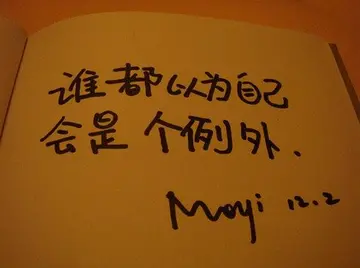 谁都以为自己
会是个例外.
Moyi 12.2